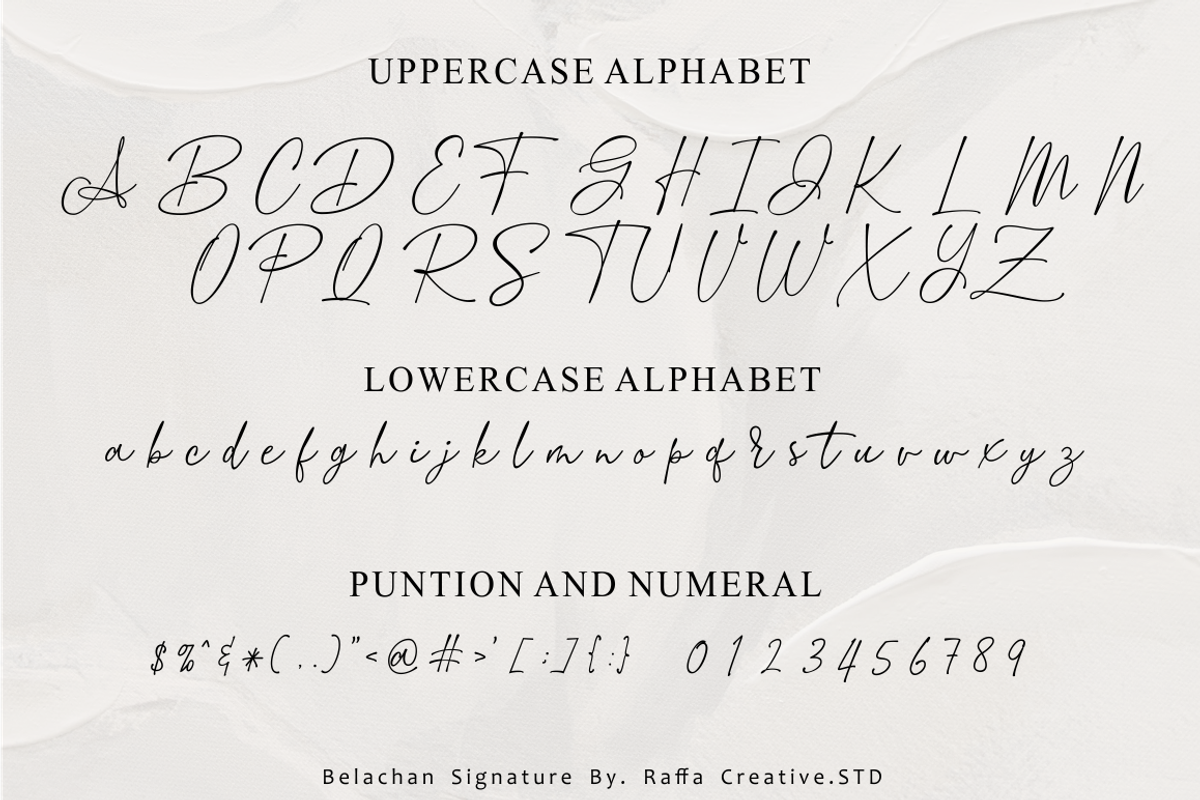 UPPERCASE ALPHABET
A B C D E F G H I J K L M N
O P Q R S T U V W X Y Z
LOWERCASE ALPHABET
a b c d e f g h i j k l m n o p q r s t u v w x y z
PUNTION AND NUMERAL
$ % ^ & * ( , . ) " < @ # > ' [ ; ] { : } 0 1 2 3 4 5 6 7 8 9
Belachan Signature By. Raffa Creative.STD